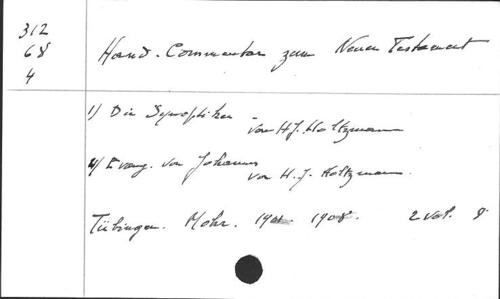 312
68
4
Hand-Commentar zum Neuen Testament
1) Die Synoptiker - von H.J. Holtzmann
4) Evang. von Johannes von H. J. Holtzmann.
Tübingen. Mohr. 1901-1908. 2 vol. 8